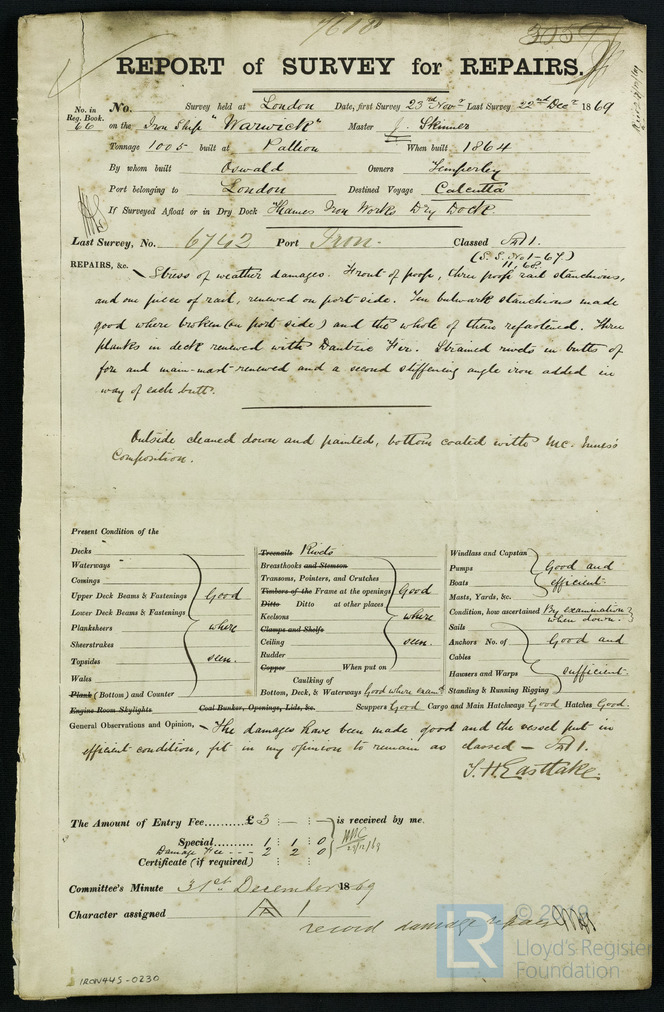 7618
REPORT of SURVEY for REPAIRS.
No. in Reg. Book. 66
No. Survey held at London Date, first Survey 23rd Novr Last Survey 22nd Decr 1869
on the Iron Ship "Warwick" Master J. Skinner
Tonnage 1005 built at Pallion When built 1864
By whom built Oswald Owners Temperley
Port belonging to London Destined Voyage Calcutta
If Surveyed Afloat or in Dry Dock Thames Iron Works Dry Dock.
Last Survey, No. 6742 Port Iron. Classed A 1.
(S.S. No 1-67)
11,68.
REPAIRS, &c. Stress of weather damages. Front of poop, three poop rail stanchions,
and one piece of rail, renewed on port side. Ten bulwark stanchions made
good where broken (on port side) and the whole of them refastened. Three
planks in deck renewed with Dantzic Fir. Strained rivets in butts of
fore and main-mast renewed and a second stiffening angle iron added in
way of each butt.
Outside cleaned down and painted, bottom coated with Mc. Inness's
Composition.
Present Condition of the
Decks
Waterways
Comings
Upper Deck Beams & Fastenings
Lower Deck Beams & Fastenings
Planksheers
Sheerstrakes
Topsides
Wales
Good where seen.
Plank (Bottom) and Counter
Engine Room Skylights Coal Bunker, Openings, Lids, &c.
Treenails Rivets
Breasthooks and Stemson
Transoms, Pointers, and Crutches
Timbers of the Frame at the openings
Ditto Ditto at other places
Keelsons
Clamps and Shelfs
Ceiling
Rudder
Copper When put on
Good where seen.
Caulking of
Bottom, Deck, & Waterways Good where examd
Windlass and Capstan
Pumps
Boats
Masts, Yards, &c.
Good and efficient
Condition, how ascertained By examination when down.
Sails
Anchors No. of
Cables
Hawsers and Warps
Standing & Running Rigging
Good and sufficient
Scuppers Good Cargo and Main Hatchways Good Hatches Good.
General Observations and Opinion, The damages have been made good and the vessel put in
efficient condition, fit in my opinion to remain as classed — A 1.
T. H. Eastlake.
The Amount of Entry Fee......... £ 3 — — is received by me.
Special......... 1 1 0
Damage Fee - - - 2 2 0
Certificate (if required)
Committee's Minute 31st December 1869
Character assigned A 1
record damage repairs
IRON445-0230
LR
© 2019
Lloyd's Register
Foundation